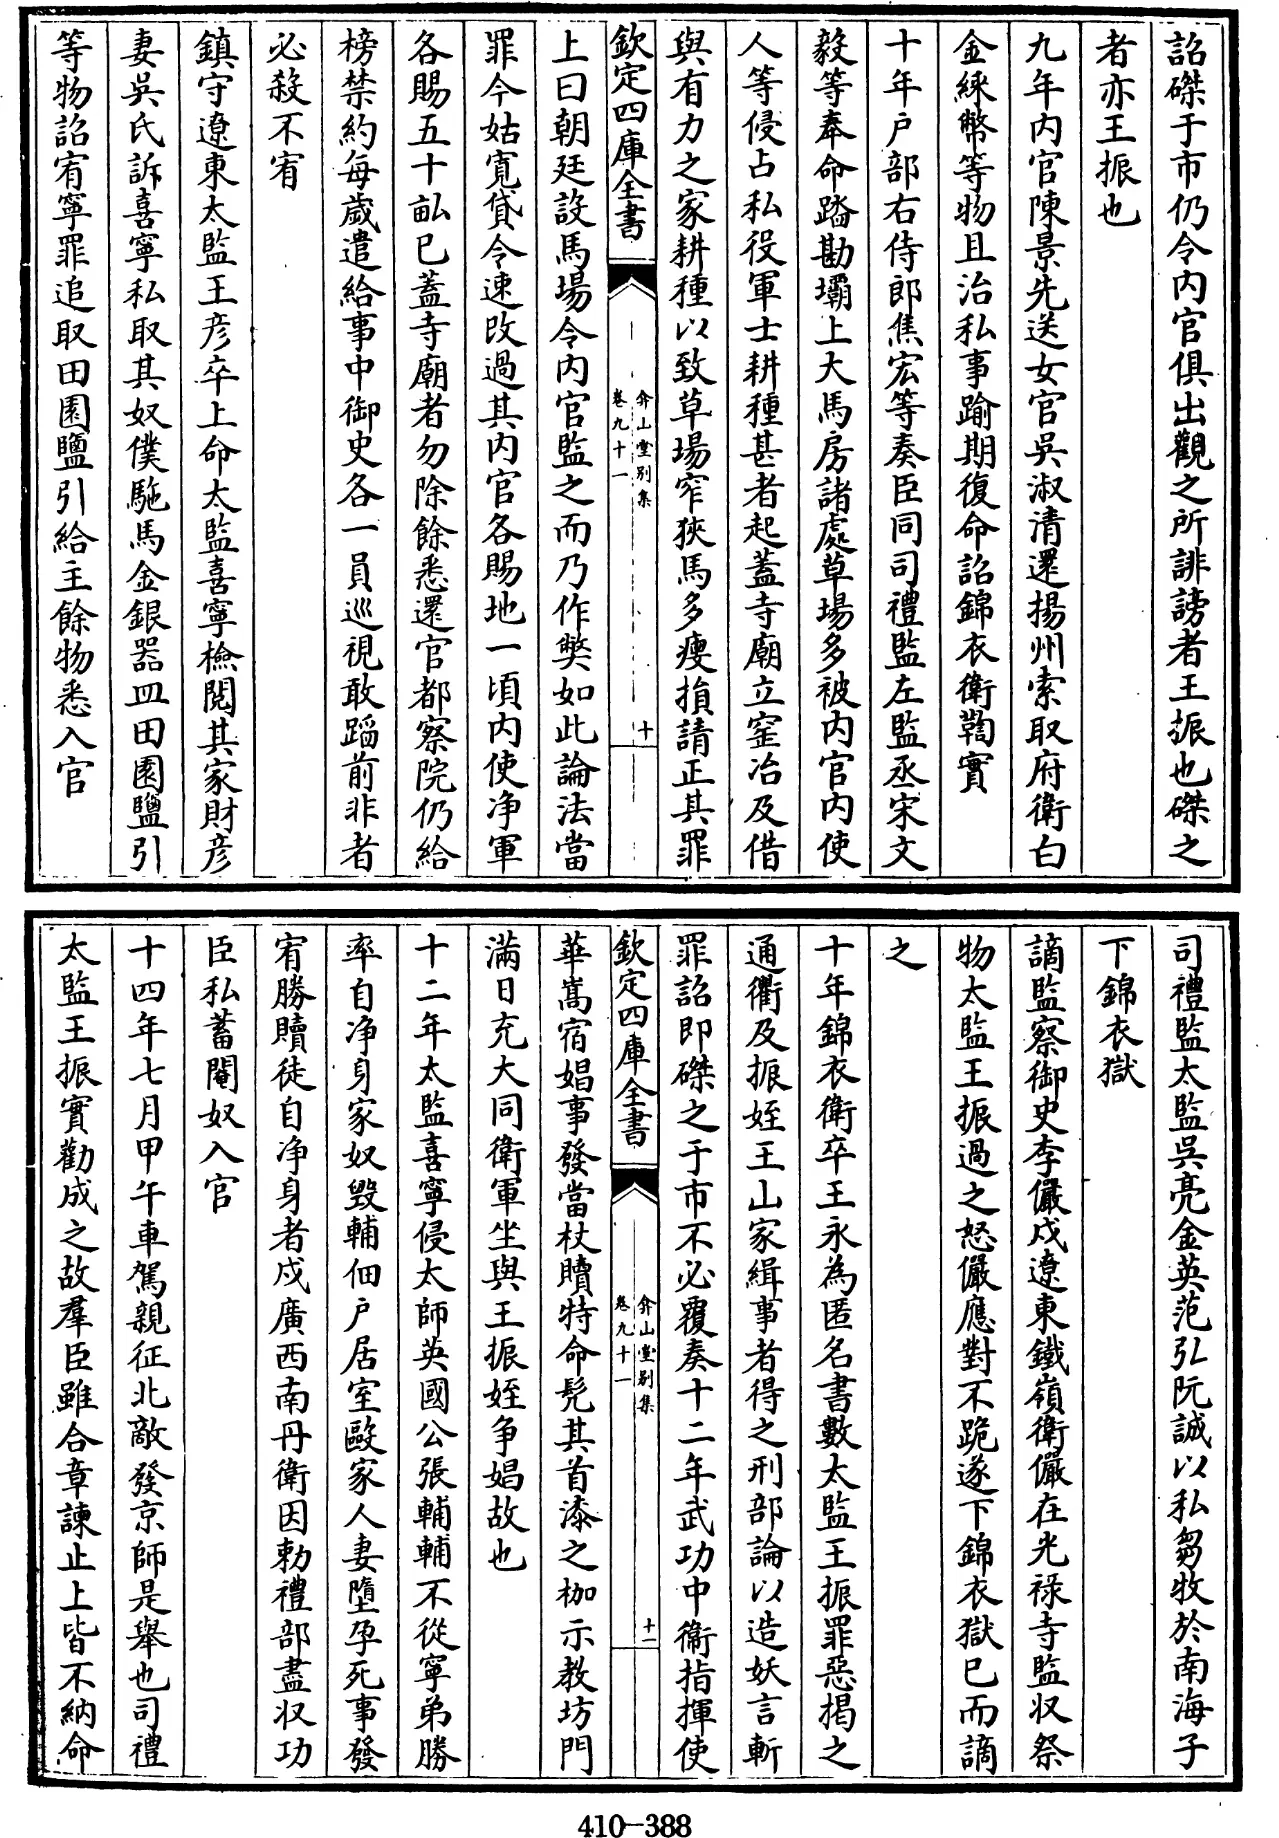 詔磔于市仍令内官俱出觀之所誹謗者王振也磔之
者亦王振也
九年内官陳景先送女官吳淑清還揚州索取府衛白
金綵幣等物且治私事踰期復命詔錦衣衛鞫實
十年户部右侍郎焦宏等奏臣同司禮監左監丞宋文
毅等奉命踏勘壩上大馬房諸處草場多被内官内使
人等侵占私役軍士耕種甚者起蓋寺廟立窑冶及借
與有力之家耕種以致草場窄狹馬多瘦損請正其罪
欽定四庫全書
弇山堂别集
卷九十一
十
上曰朝廷設馬場令内官監之而乃作獘如此論法當
罪今姑寛貸令速改過其内官各賜地一頃内使净軍
各賜五十畆已蓋寺廟者勿除餘悉還官都察院仍給
榜禁約每歲遣給事中御史各一員巡視敢蹈前非者
必殺不宥
鎮守遼東太監王彦卒上命太監喜寧檢閲其家財彦
妻吳氏訴喜寧私取其奴僕駞馬金銀器皿田園鹽引
等物詔宥寧罪追取田園鹽引給主餘物悉入官
司禮監太監吳亮金英范弘阮誠以私芻牧於南海子
下錦衣獄
謫監察御史李儼戍遼東鐵嶺衛儼在光禄寺監収祭
物太監王振過之怒儼應對不跪遂下錦衣獄已而謫
之
十年錦衣衛卒王永為匿名書數太監王振罪惡揭之
通衢及振姪王山家緝事者得之刑部論以造妖言斬
罪詔即磔之于市不必覆奏十二年武功中衛指揮使
欽定四庫全書
弇山堂别集
卷九十一
十一
華嵩宿娼事發當杖贖特命髠其首漆之枷示教坊門
滿日充大同衛軍坐與王振姪争娼故也
十二年太監喜寧侵太師英國公張輔輔不從寧弟勝
率自净身家奴毁輔佃户居室毆家人妻墮孕死事發
宥勝贖徒自净身者戍廣西南丹衛因勅禮部盡収功
臣私蓄閹奴入官
十四年七月甲午車駕親征北敵發京師是舉也司禮
太監王振實勸成之故羣臣雖合章諫止上皆不納命
410-388